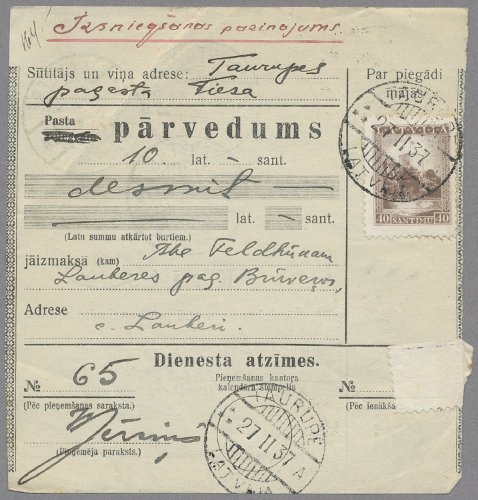 164
Izsniegšanas paziņojums
Sūtītājs un viņa adrese: Taurupes
pagasta Tiesa
Par piegādi
mājās
Pasta
pārvedums
10 lat. — sant.
desmit
lat. — sant.
(Latu summu atkārtot burtiem.)
jāizmaksā (kam) Abe Feldhūnam
Lauberes pag.
Adrese
c. Lauberi
LATVIJA
40 SANTIMU 40
TAURUPE
27 II 37
LATVIJA
Dienesta atzīmes.
№ 65
Pieņemšanas kantora
kalendāra stempelis
№
(Pēc pieņemšanas saraksta.)
(Pēc ienākša
(Pieņēmēja paraksts.)
TAURUPE
27 II 37 A
LATVIJA